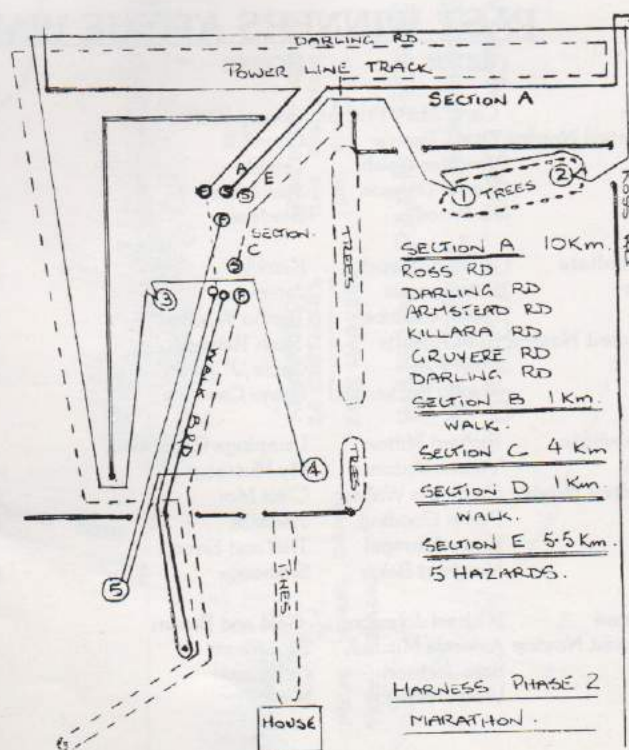 DARLING RD.
POWER LINE TRACK
SECTION A
A
E
S
F
SECTION
C
2
F
3
WALK B RD
4
5
TREES
TREES
PINES
HOUSE
1
TREES
2
ROSS RD
SECTION A 10Km.
ROSS RD
DARLING RD
ARMSTEAD RD
KILLARA RD
GRUYERE RD
DARLING RD
SECTION B 1 Km.
WALK.
SECTION C 4 Km
SECTION D 1Km
WALK.
SECTION E 5.5 Km.
5 HAZARDS.
HARNESS PHASE 2
MARATHON.